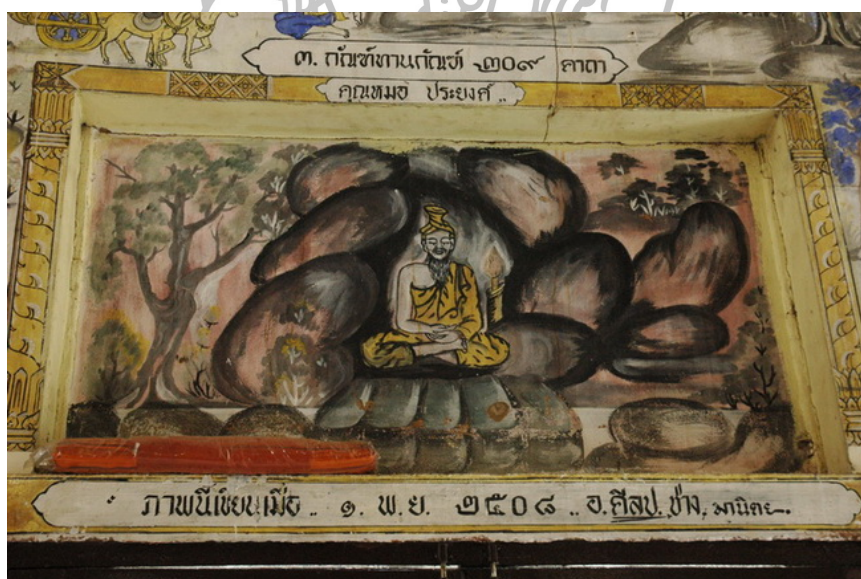 ๓. กัณฑ์ทานกัณฑ์ ๒๐๙ คาถา
คุณหมอ ประยงค์ ..
ภาพนี้เขียนเมื่อ .. ๑. พ.ย. ๒๕๐๘ .. อ. ศิลป. ช่าง.